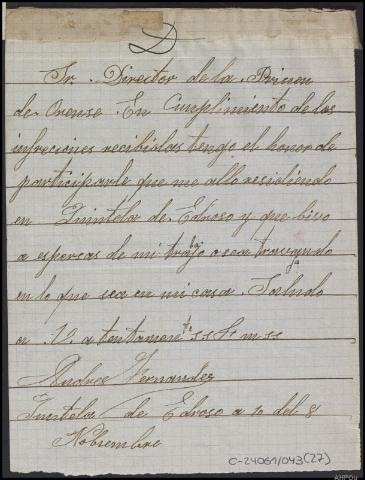 Sr. Director de la Pricion
de Orense. En Cumplimiento de las
recibidas tengo el honor de
participarle que me allo residiendo
en Quintela de Edroso y que bivo
a espercas de mi trabajo o sea
en lo que sea en mi casa. Saludo
a V. atentamente s.s.
Fernandez
Quintela de Edroso a 10 del 8
Nobiembre
C-24061/043(27)
AHPOu